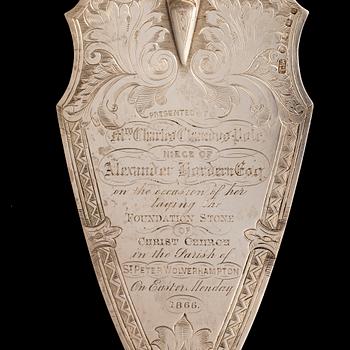 PRESENTED TO
Mrs Charles Chandos-Pole
NIECE OF
Alexander Hordern Esq
on the occasion of her
laying the
FOUNDATION STONE
OF
CHRIST CHURCH
in the Parish of
ST PETER WOLVERHAMPTON
On Easter Monday
1866.